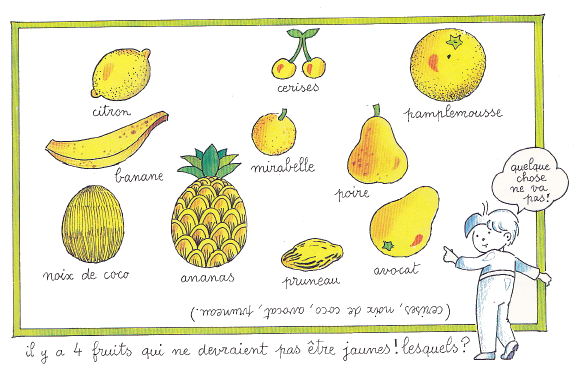 citron
cerises
pamplemousse
banane
mirabelle
poire
quelque
chose
ne va
pas!
noix de coco
ananas
pruneau
avocat
(cerises, noix de coco, avocat, pruneau.)
il y a 4 fruits qui ne devraient pas être jaunes! lesquels?